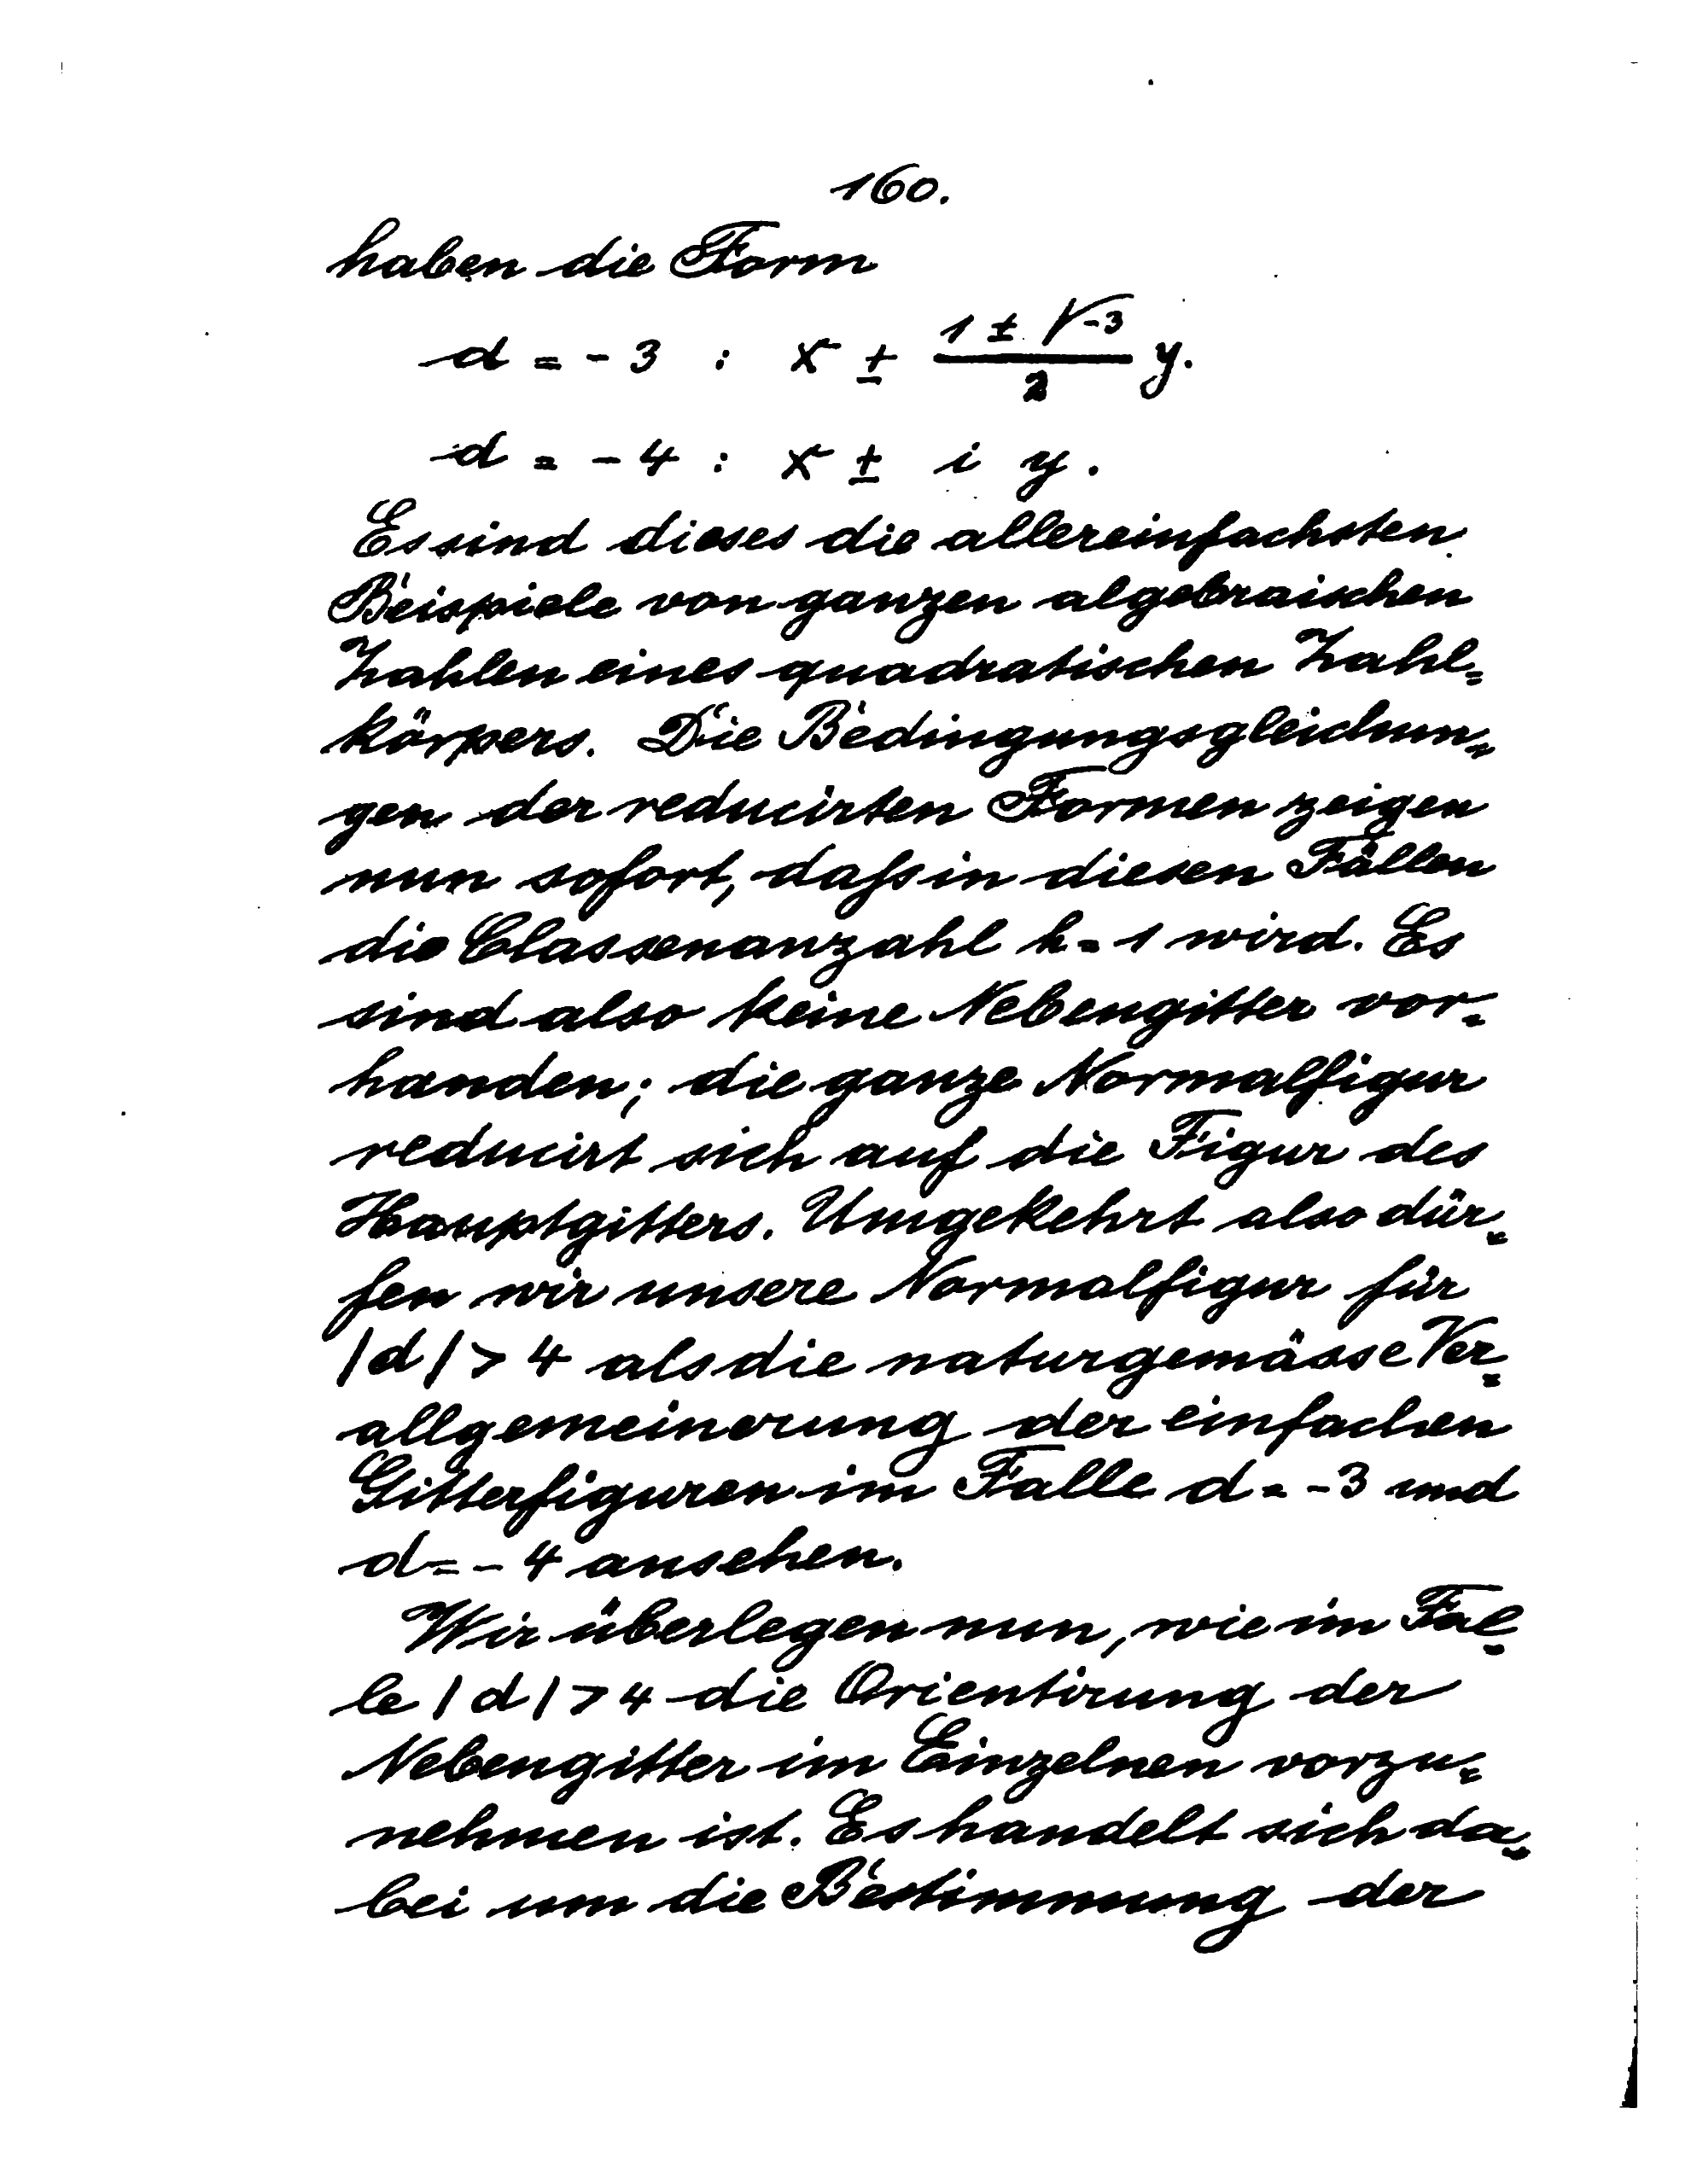 160.
haben die Form
d = - 3 : x ± (1 ± √-3)/2 y.
d = - 4 : x ± i y.
Es sind dieses die allereinfachsten
Beispiele von ganzen algebraischen
Zahlen eines quadratischen Zahl=
körpers. Die Bedingungsgleichun=
gen der reducirten Formen zeigen
nun sofort, daſs in diesen Fällen
die Classenanzahl h = 1 wird. Es
sind also keine Nebengitter vor=
handen; die ganze Normalfigur
reducirt sich auf die Figur des
Hauptgitters. Umgekehrt also dür=
fen wir unsere Normalfigur für
|d| > 4 als die naturgemässe Ver=
allgemeinerung der einfachen
Gitterfiguren im Falle d = -3 und
d = - 4 ansehen.
Wir überlegen nun, wie im Fal=
le |d| > 4 die Orientirung der
Nebengitter im Einzelnen vorzu=
nehmen ist. Es handelt sich da=
bei um die Bestimmung der